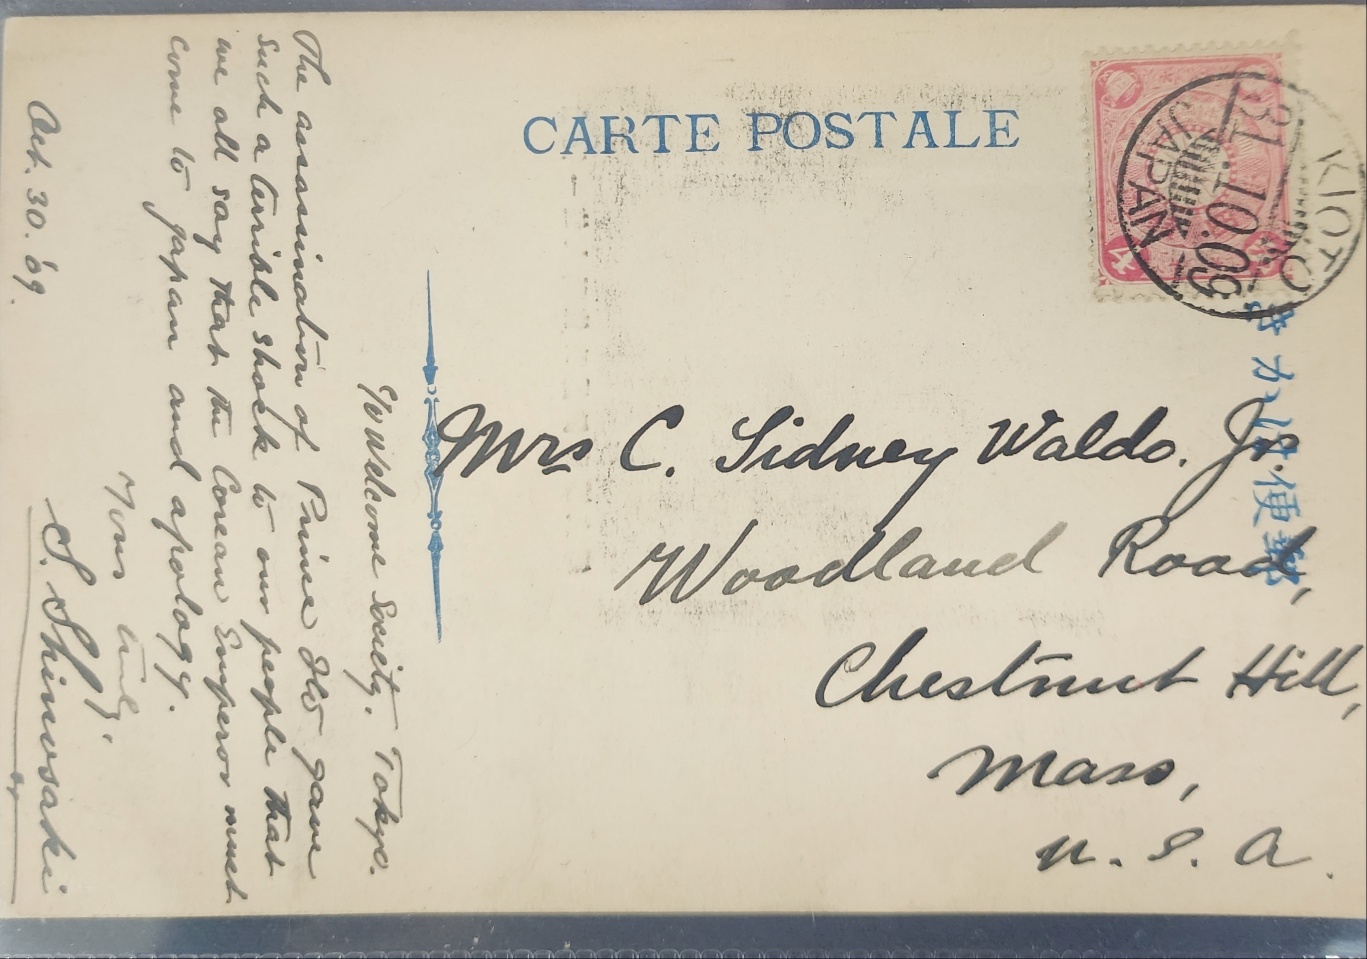 CARTE POSTALE
KIOTO
31.10.09
JAPAN
4
きかは便郵
Mrs C. Sidney Waldo. Jr.
Woodland Road,
Chestnut Hill,
Mass,
U. S. A.
c/o Welcome Society. Tokyo.
The assassination of Prince Ito gave
such a terrible shock to our people that
we all say that the Corean Emperor must
come to Japan and apology.
Yours truly,
S. Shinosaki
Oct. 30. '09.